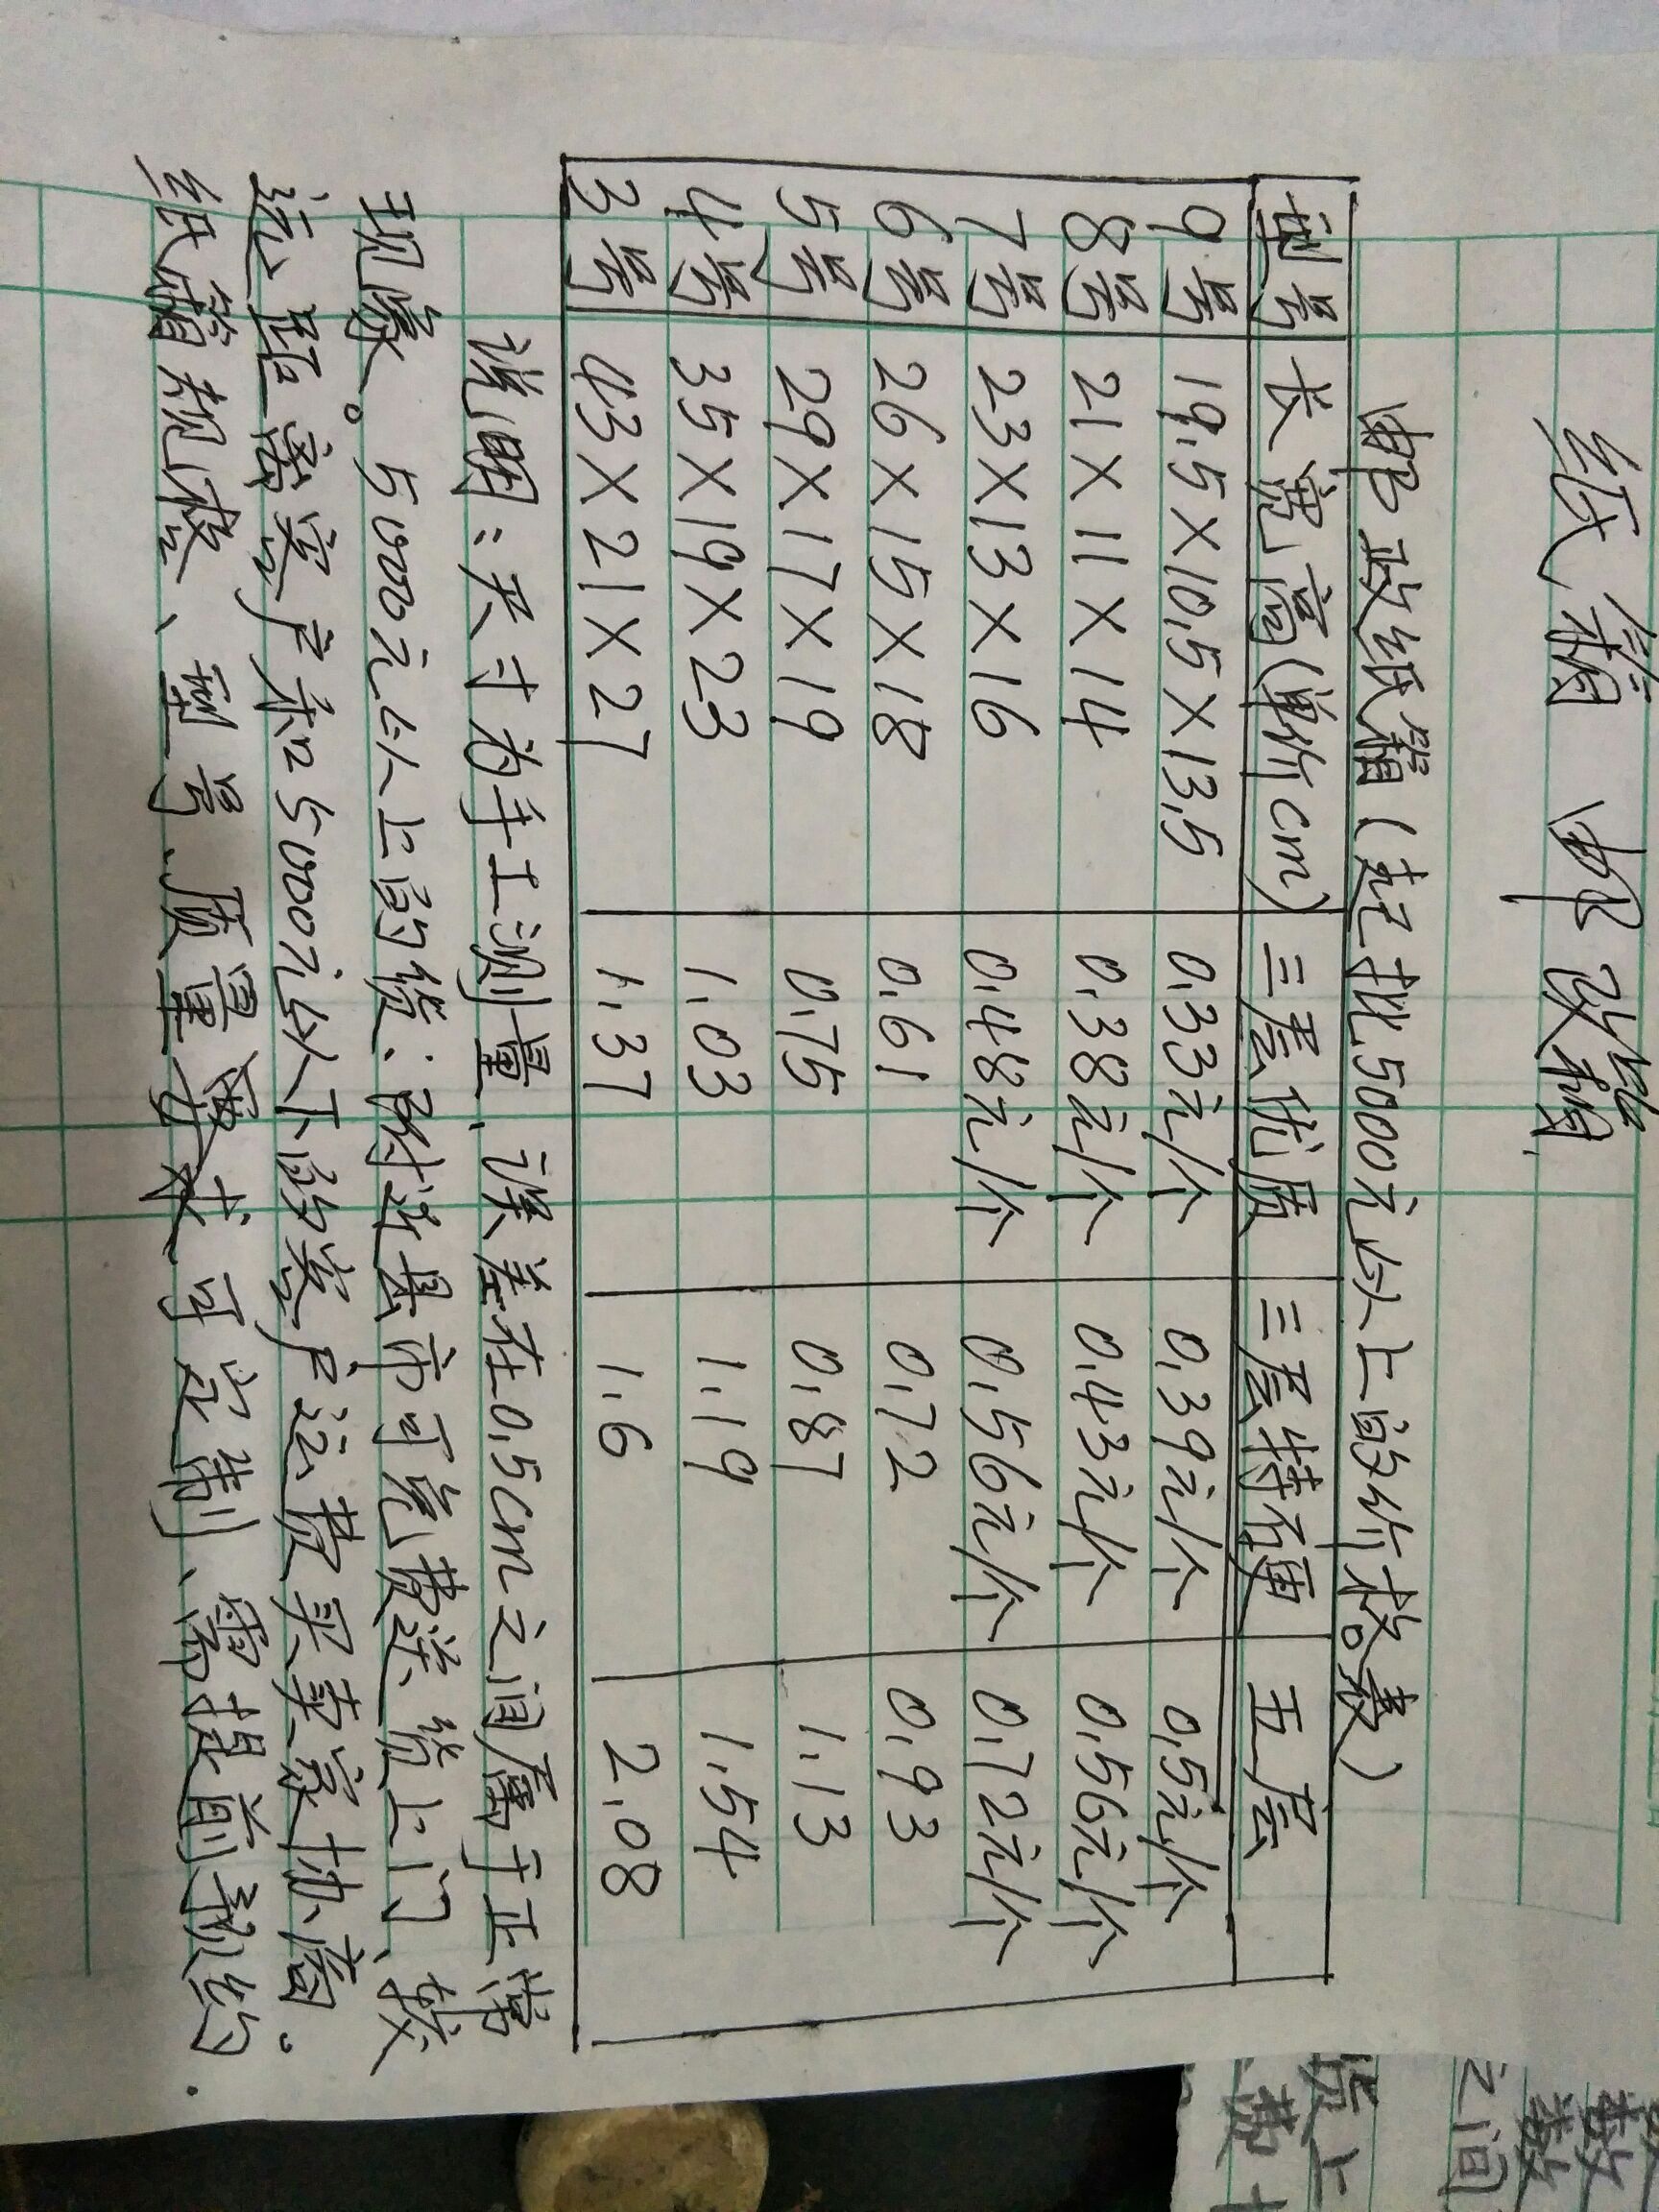 纸箱 邮政箱
邮政纸箱(起批5000元以上的价格表)
型号 长宽高(单价cm) 三层优质 三层特硬 五层
9号 19.5×10.5×13.5 0.33元/个 0.39元/个 0.5元/个
8号 21×11×14 0.38元/个 0.43元/个 0.56元/个
7号 23×13×16 0.48元/个 0.56元/个 0.72元/个
6号 26×15×18 0.61 0.72 0.93
5号 29×17×19 0.75 0.87 1.13
4号 35×19×23 1.03 1.19 1.54
3号 43×21×27 1.37 1.6 2.08
说明:尺寸为手工测量、误差在0.5cm之间属于正常
现象。5000元以上的货:附近县市可免费送货上门、较
远距离客户和5000元以下的客户运费买卖家协商.
纸箱规模、型号、质量要求可定制、需提前预约.
货上
费
之间